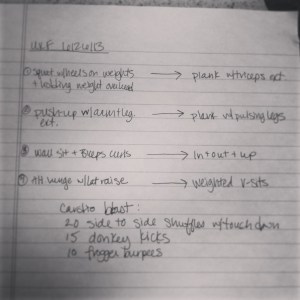 WKF 6/26/13
① squat w/heels on weights → plank w/triceps ext
+ holding weight overhead
② pushup w/arm+leg → plank w/ pulsing legs
ext.
③ wall sit + biceps curls → in+out+up
④ Alt lunge w/lat raise → weighted v-sits
Cardio blast:
20 side to side shuffles w/touch down
15 donkey kicks
10 frogger burpees